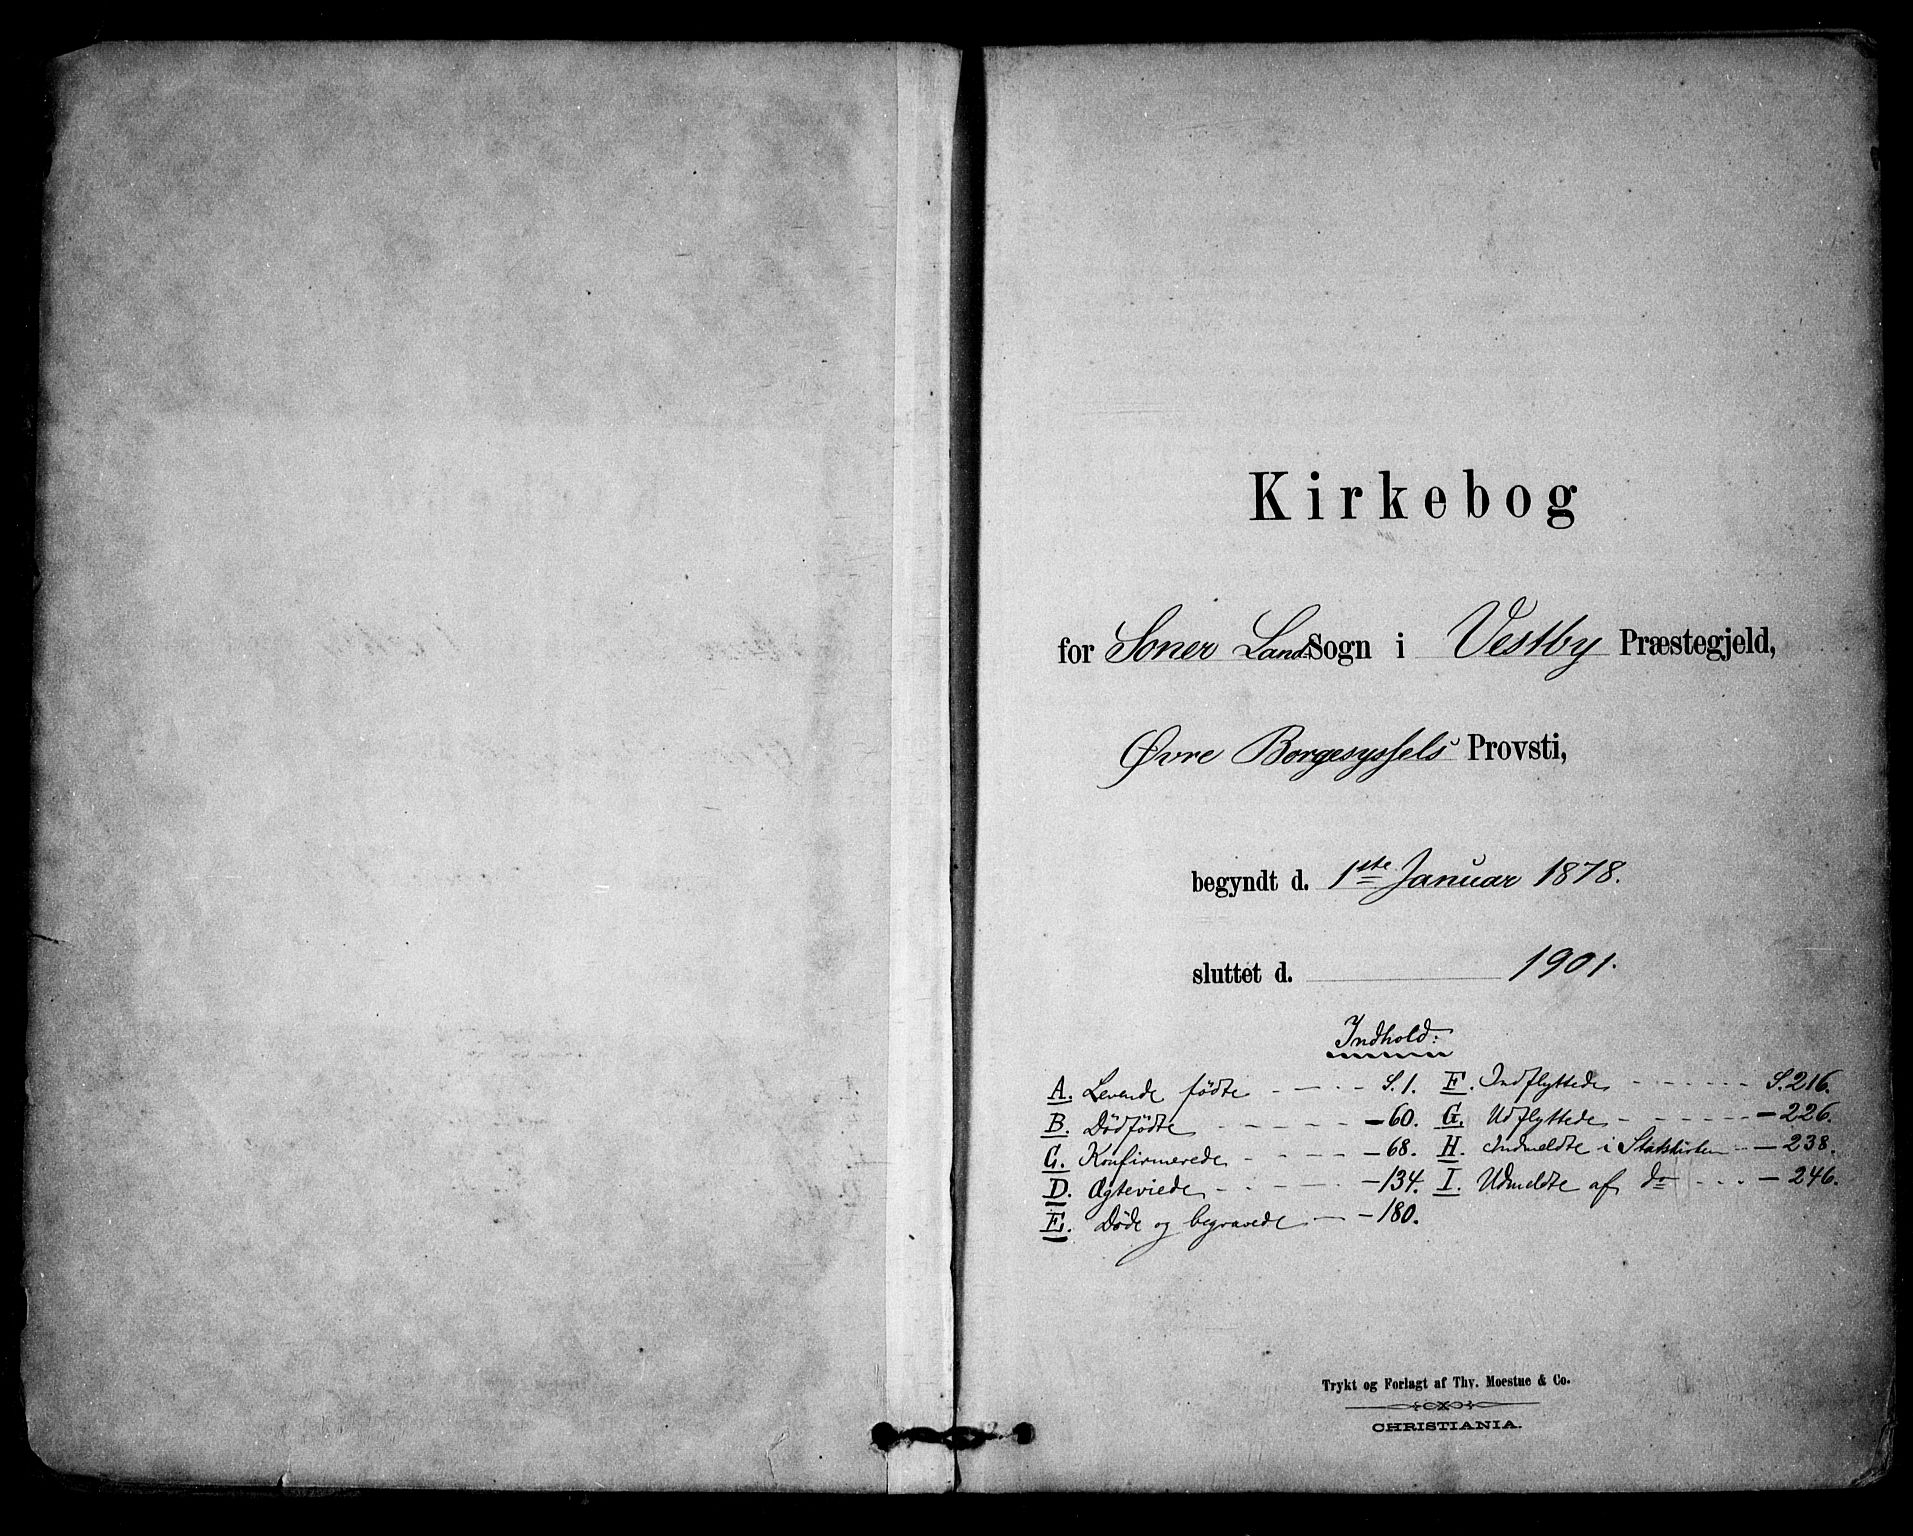 Kirkebog
for Soner Land Sogn i Vestby Præstegjeld,
Øvre Borgesyssels Provsti,
begyndt d. 1ste Januar 1878.
sluttet d. 1901.
Indhold:
A. Levende fødte - - - - S. 1.
B. Dødfødte - - - - - 60.
C. Konfirmerede - - - - 68.
D. Ægteviede - - - - 134.
E. Døde og begravede - - 180.
F. Indflyttede - - - - - S. 216.
G. Udflyttede - - - - - 226.
H. Indmeldte i Statskirken - - 238.
I. Udmeldte af do - - - - 246.
Trykt og Forlagt af Thv. Moestue & Co.
CHRISTIANIA.